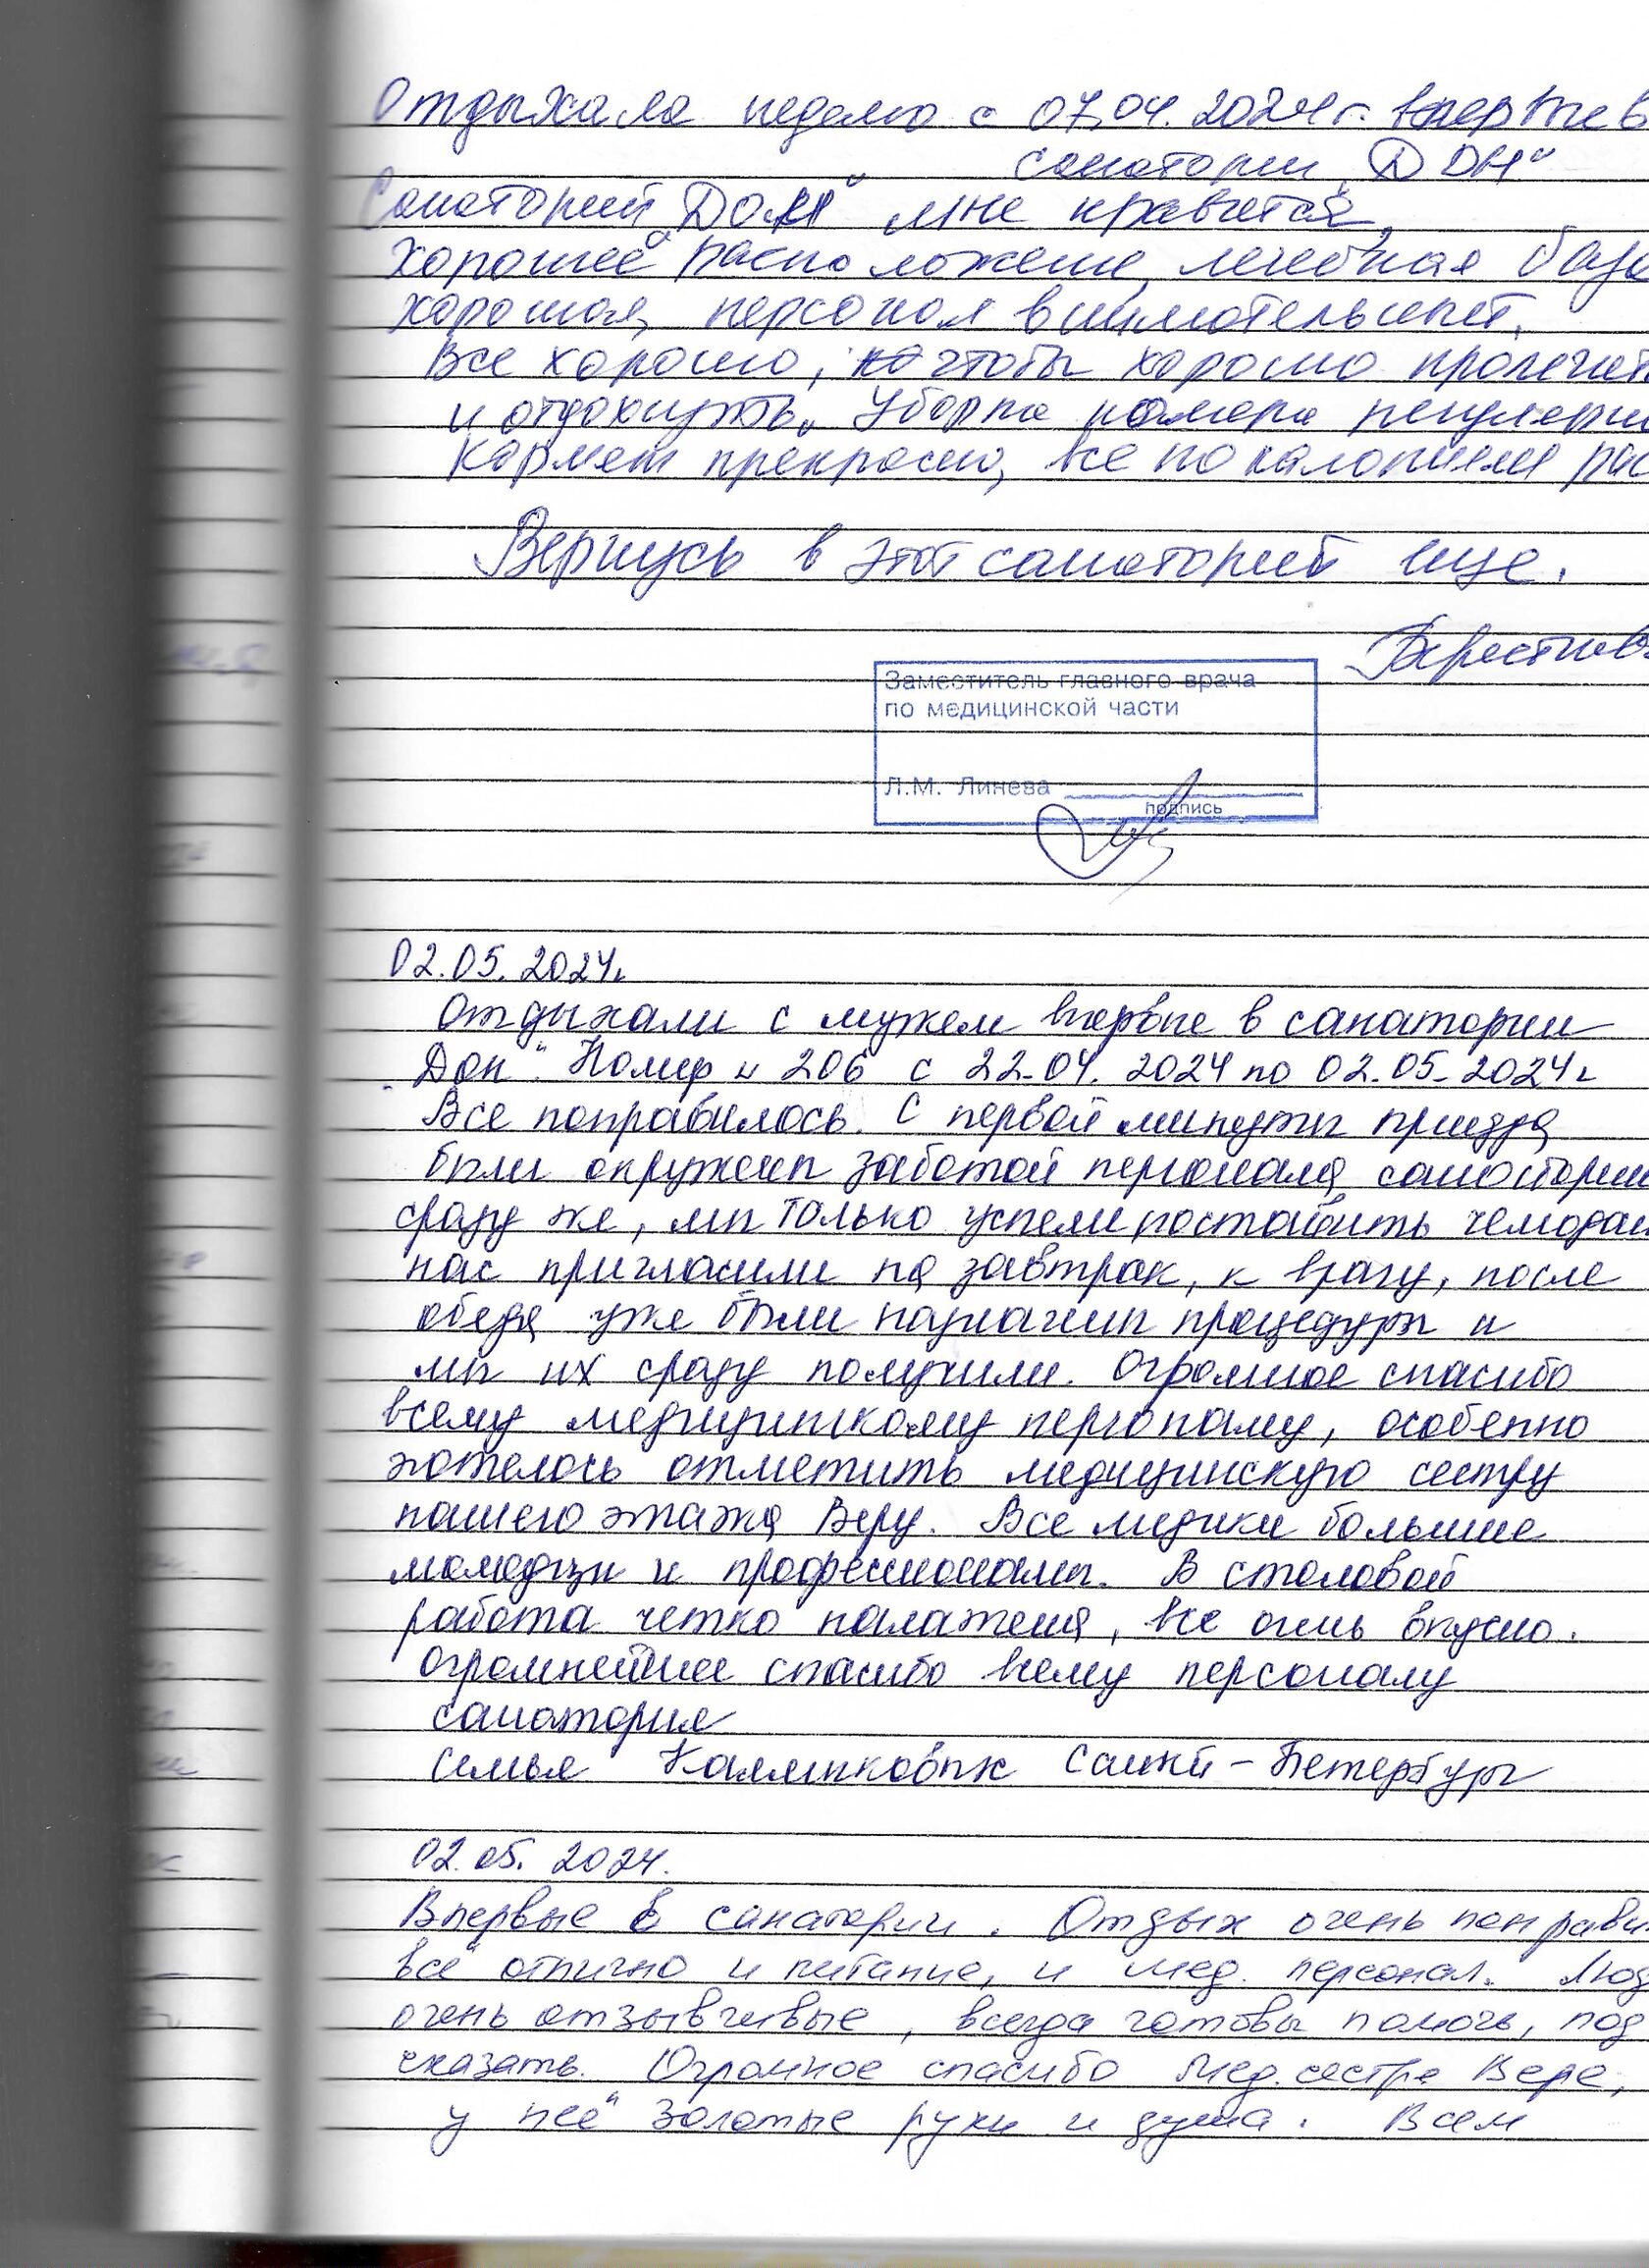 Отдыхала неделю с 07.04.2024г. впервые в
санатории „Дон"
Санаторий „Дон" мне нравится,
хорошее расположение, лечебная база
хорошая, персонал внимательный,
Все хорошо, чтобы хорошо пролечит
и отдохнуть. Уборка номера регулярн
Кормят прекрасно, все по калориям рас
Вернусь в этот санаторий еще.
Заместитель главного врача
по медицинской части
Л.М. Линева
подпись
02.05.2024г
Отдыхали с мужем впервые в санатории
„Дон". Номер н 206 с 22.04.2024 по 02.05.2024г
Все понравилось. С первой минуты приезда
были окружены заботой персонала санатории
сразу же, мы только успели поставить чемодан
нас пригласили на завтрак, к врачу, после
обеда уже были назначены процедуры и
мы их сразу получили. Огромное спасибо
всему медицинскому персоналу, особенно
хотелось отметить медицинскую сестру
нашего этажа Веру. Все медики большие
молодцы и профессионалы. В столовой
работа четко налажена, все очень вкусно.
Огромнейшее спасибо всему персоналу
санатория
Семья Санкт-Петербург
02.05.2024.
Впервые в санатории. Отдых очень понрави
всё отлично и питание, и мед. персонал. Люд
очень отзывчивые, всегда готовы помочь, под
сказать. Огромное спасибо Мед.сестре Вере,
у неё золотые руки и душа. Всем